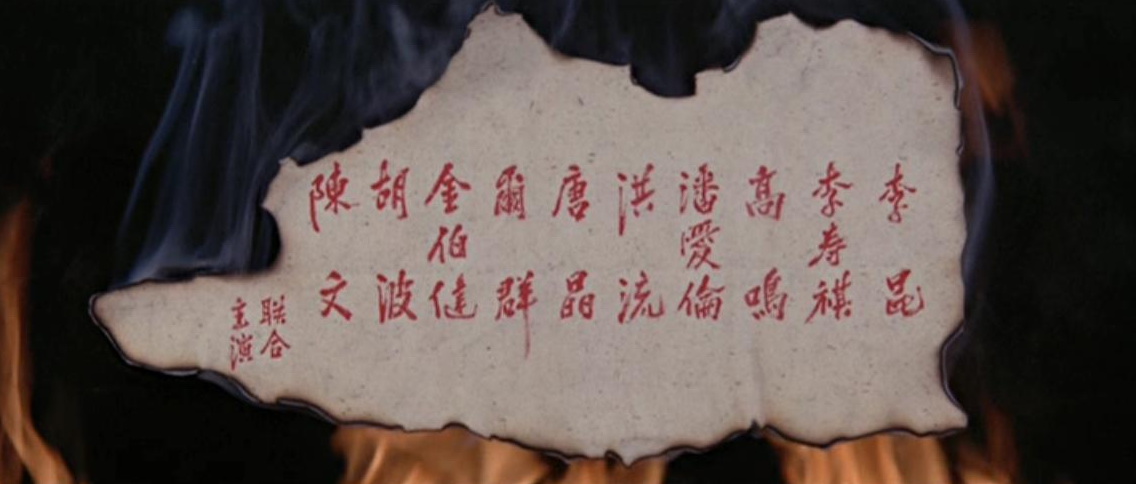 李昆
李寿祺
高鳴
潘愛倫
洪流
唐晶
爾群
金伯健
胡波
陳文
联合
主演